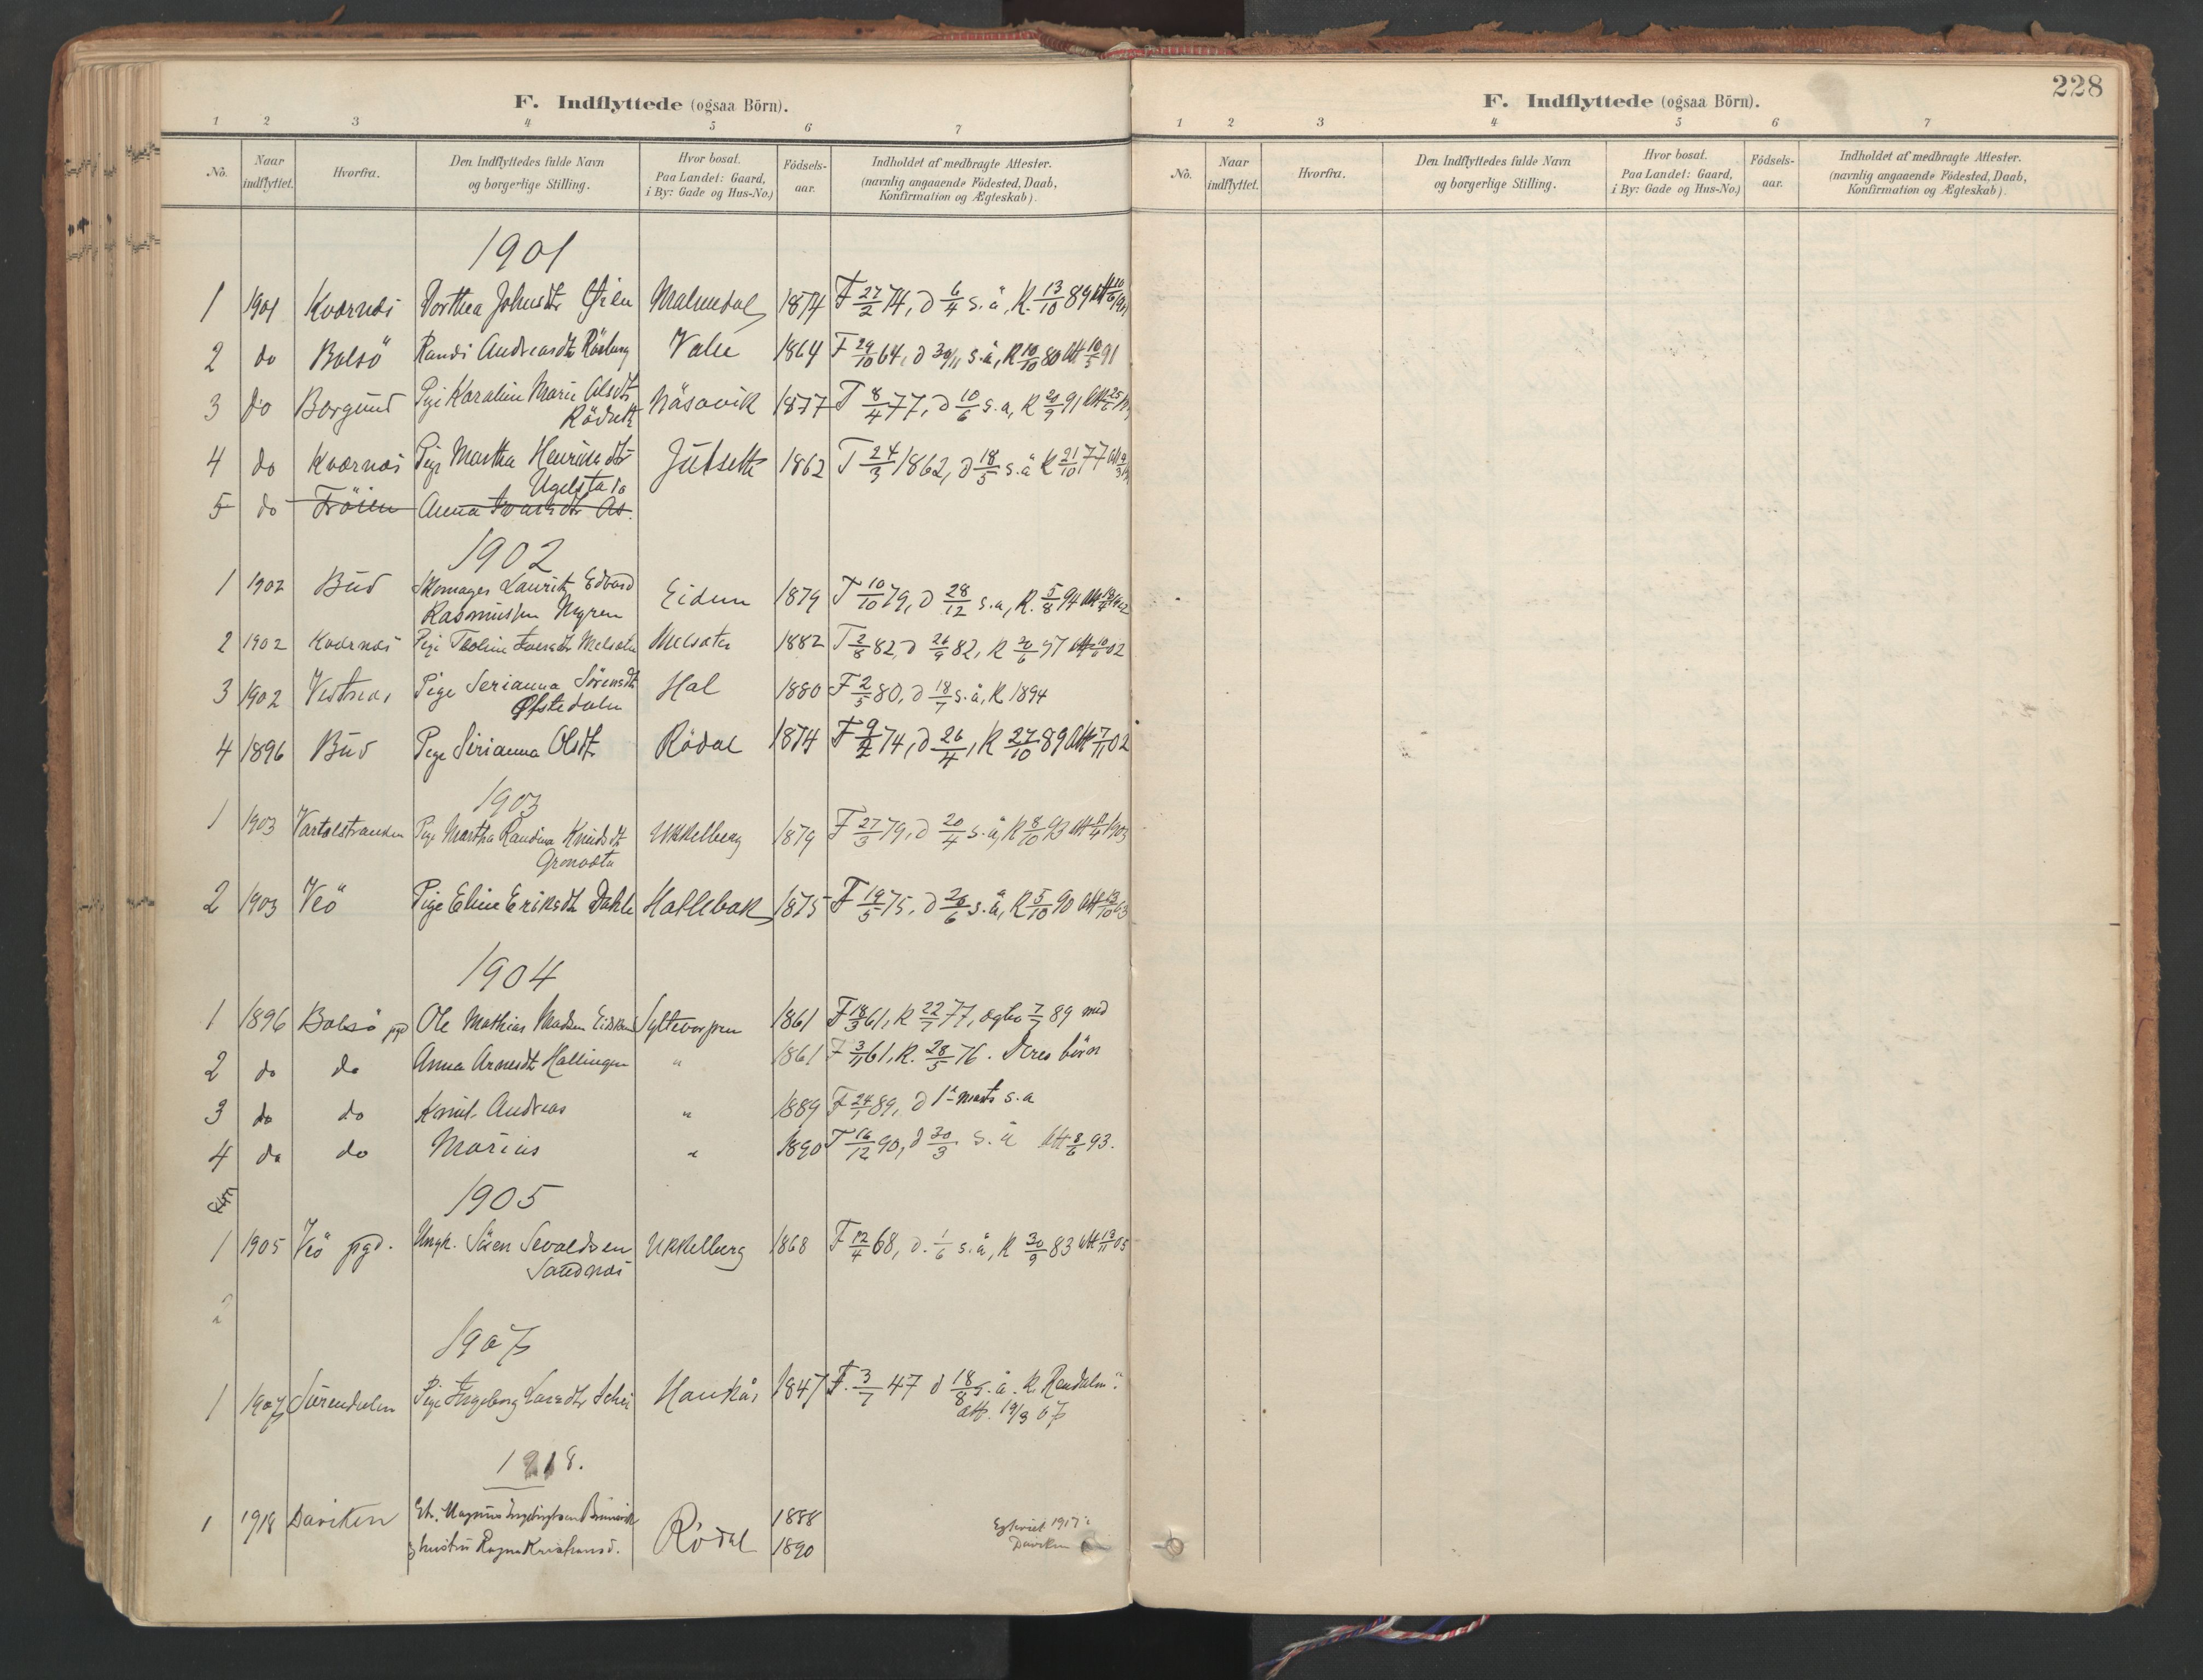 F. Indflyttede (ogsaa Börn).
1 2 3 4 5 6 7
No. Naar indflyttet. Hvorfra. Den Indflyttedes fulde Navn og borgerlige Stilling. Hvor bosat. Paa Landet: Gaard, i By: Gade og Hus-No.) Födsels-aar. Indholdet af medbragte Attester. (navnlig angaaende Födested, Daab, Konfirmation og Ægteskab).
1901
1 1901 Kvernes Dorthea Johnsdtr Øien Malmedal 1874 F 27/2 74, d 6/4 s. å, K. 13/10 89 Att 10/6
2 do Bolsö Randi Andreasdtr 1864 F 29/10 64, d 30/11 s. å, K 10/10 80 Att 10/5 91
3 do Borgund Pige Karoline Marie Olsdtr Näsovik 1877 F 8/4 77, d 10/6 s. a, K 20/9 91 Att
4 do Kvernes Pige Martha Henriksdtr Jutsette 1862 F 24/3 1862, d 18/5 s. å K 21/10 77 Att
Ugelstad
5 do Tröien Anna Ivarsdtr Ås.
1902
1 1902 Bud Skomager Laurits Edvard Eidem 1879 F 10/10 79, d 28/12 s. a, K. 5/8 94 Att
Rasmussen Myren
2 1902 Kvernes Pige Toline Iversdtr Melsæter Melsæter 1882 F 2/8 82, d 26/9 82, K 20/6 97 Att 10/6 02
3 1902 Vestnes Pige Serianna Sörensdtr Hal 1880 F 2/5 80, d 18/7 s. å, K 1894
Øfstedalen
4 1896 Bud Pige Sirianna Olsdtr Rödal 1874 F 9/2 74, d 26/4, K 27/10 89 Att 7/11 02
1903
1 1903 Vartdalstranden Pige Martha Randina Knudsdtr Ukkelberg 1879 F 27/3 79, d 20/4 s. å, K 8/10 93 Att 1903
2 1903 Veö Pige Eline Eriksdtr Dahle Hallebak 1875 F 19/5 75, d 26/6 s. å, K 5/10 90 Att 13/10 03
1904
1 1896 Bolsö pgd Ole Mathias Madsen Syltevorpen 1861 F 18/3 61, K 22/7 77, ægtev 7/7 89 med
2 do do Anna Arnesdtr Hallingen " 1861 F 3/11 61, K. 28/5 76. Deres börn
3 do do Knut Andreas " 1889 F 24/1 89, d 1ste marts s. a
4 do do Marius " 1890 F 16/12 90, d 30/3 s. å Att 8/6 93.
1905
1 1905 Veö pgd. Ungk. Sören Sevaldsen Ukkelberg 1868 F 12/4 68, d. 1/6 s. å, K 30/9 83 Att 13/11 05
Sandnes
2
1907
1 1907 Surendalen Pige Ingeborg Larsdtr Schei Haukås 1847 F. 3/7 47 d 18/8 s. å. K. Rendalen
att. 19/3 07
1918.
1 1918 Daviken Magnus Ingebrigtsen Rödal 1888 1917 i
hustru Ragna Kristiansd. 1890 Daviken
228
F. Indflyttede (ogsaa Börn).
1 2 3 4 5 6 7
No. Naar indflyttet. Hvorfra. Den Indflyttedes fulde Navn og borgerlige Stilling. Hvor bosat. Paa Landet: Gaard, i By: Gade og Hus-No.) Födsels-aar. Indholdet af medbragte Attester. (navnlig angaaende Födested, Daab, Konfirmation og Ægteskab).